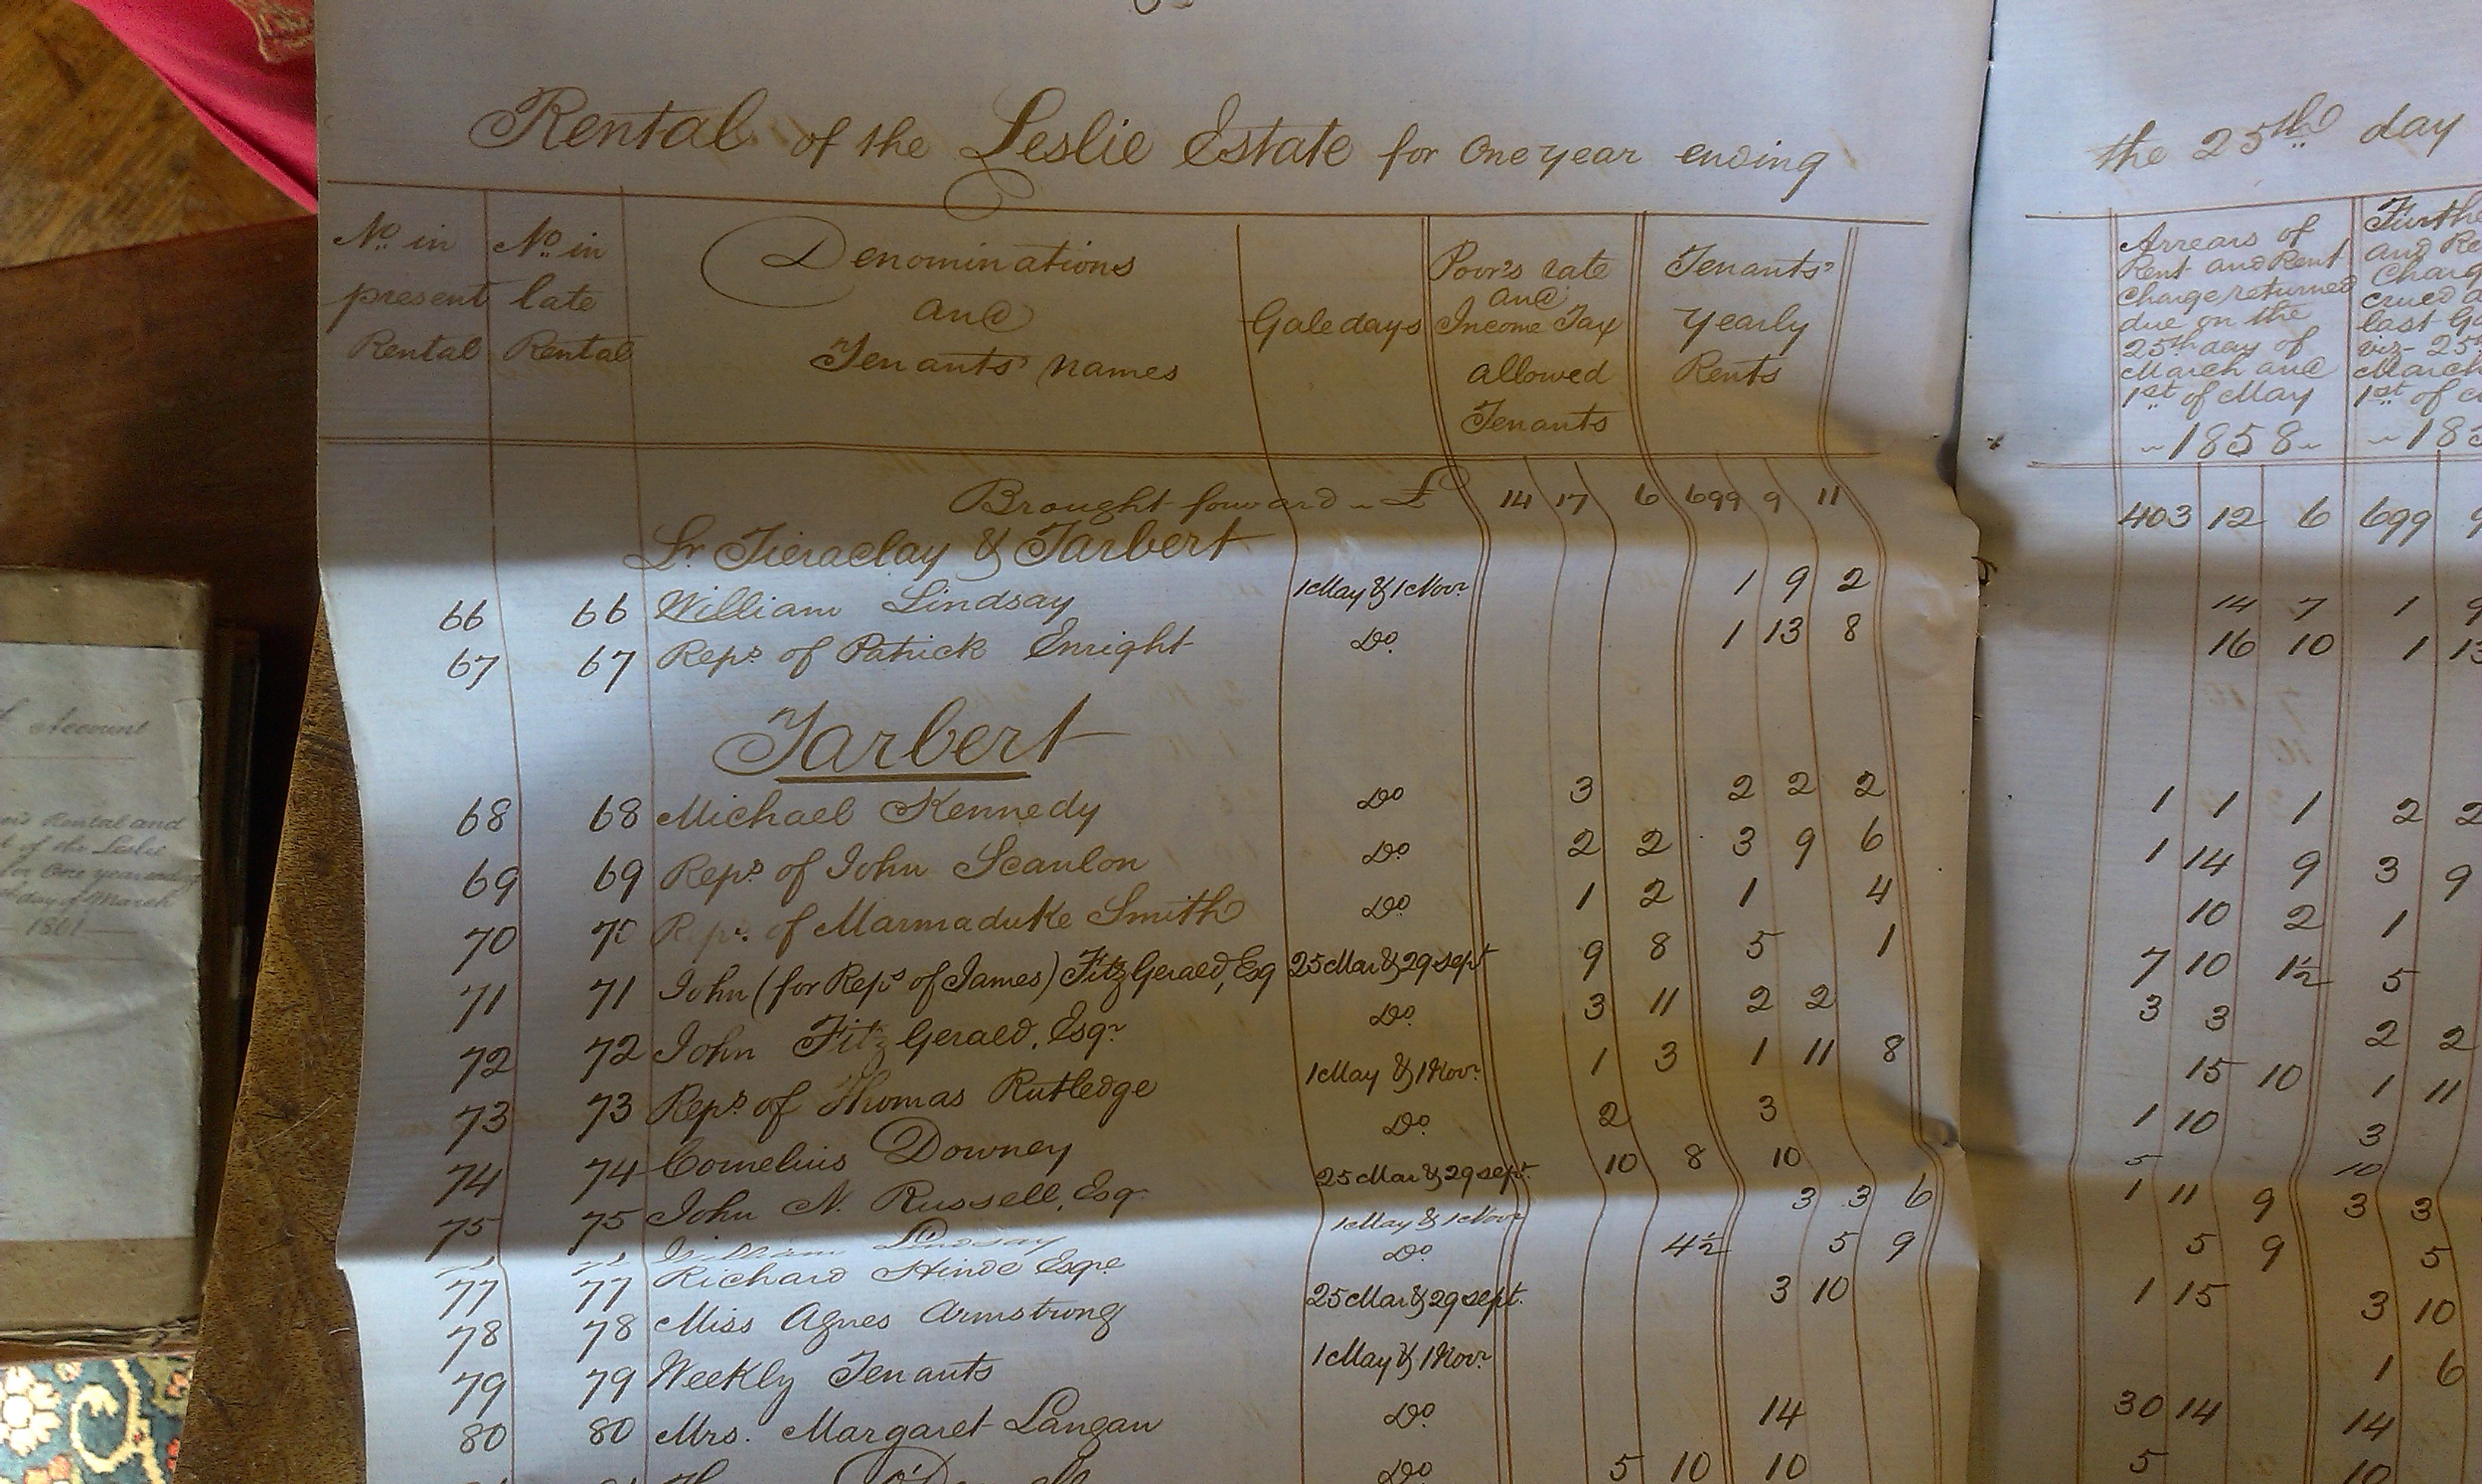 Rental of the Leslie Estate for One year ending
No. in present Rental
No. in late Rental
Denominations and Tenants' Names
Gale days
Poor's rate and Income Tax allowed Tenants
Tenants' Yearly Rents
Brought forward £ 14 17 6 699 9 11
Sr. Tieraclay & Tarbert
66 66 William Lindsay 1 May & 1 Novr. 1 9 2
67 67 Reps. of Patrick Enright Do. 1 13 8
Tarbert
68 68 Michael Kennedy Do 3 2 2 2
69 69 Reps. of John Scanlon Do. 2 2 3 9 6
70 70 Reps. of Marmaduke Smith Do. 1 2 1 4
71 71 John (for Reps. of James) FitzGerald, Esq 25 Mar & 29 Sept 9 8 5 1
72 72 John FitzGerald, Esqr. Do. 3 11 2 2
73 73 Reps. of Thomas Rutledge 1 May & 1 Novr. 1 3 1 11 8
74 74 Cornelius Downey Do. 2 3
75 75 John N. Russell, Esqr. 25 Mar & 29 Sept. 10 8 10
William Lindsay 1 May & 1 Novr 3 3 6
77 77 Richard Hinde Esqre. Do. 4½ 5 9
78 78 Miss Agnes Armstrong 25 Mar & 29 Sept. 3 10
79 79 Weekly Tenants 1 May & 1 Novr.
80 80 Mrs. Margaret Langan Do. 14
Do. 5 10 10
the 25th day
Arrears of Rent and Rent Charge returned due on the 25th day of March and 1st of May 1858
and
last
viz- 25
March
1st of
403 12 6 699 9
14 7 1 9
16 10 1 13
1 1 1 2 2
1 14 9 3 9
10 2 1
7 10 1½ 5
3 3 2 2
15 10 1 11
1 10 3
5 10
1 11 9 3 3
5 9 5
1 15 3 10
1 6
30 14 14
5 10
Account
Rental and
of the Leslie
for One year ending
day of March
1861